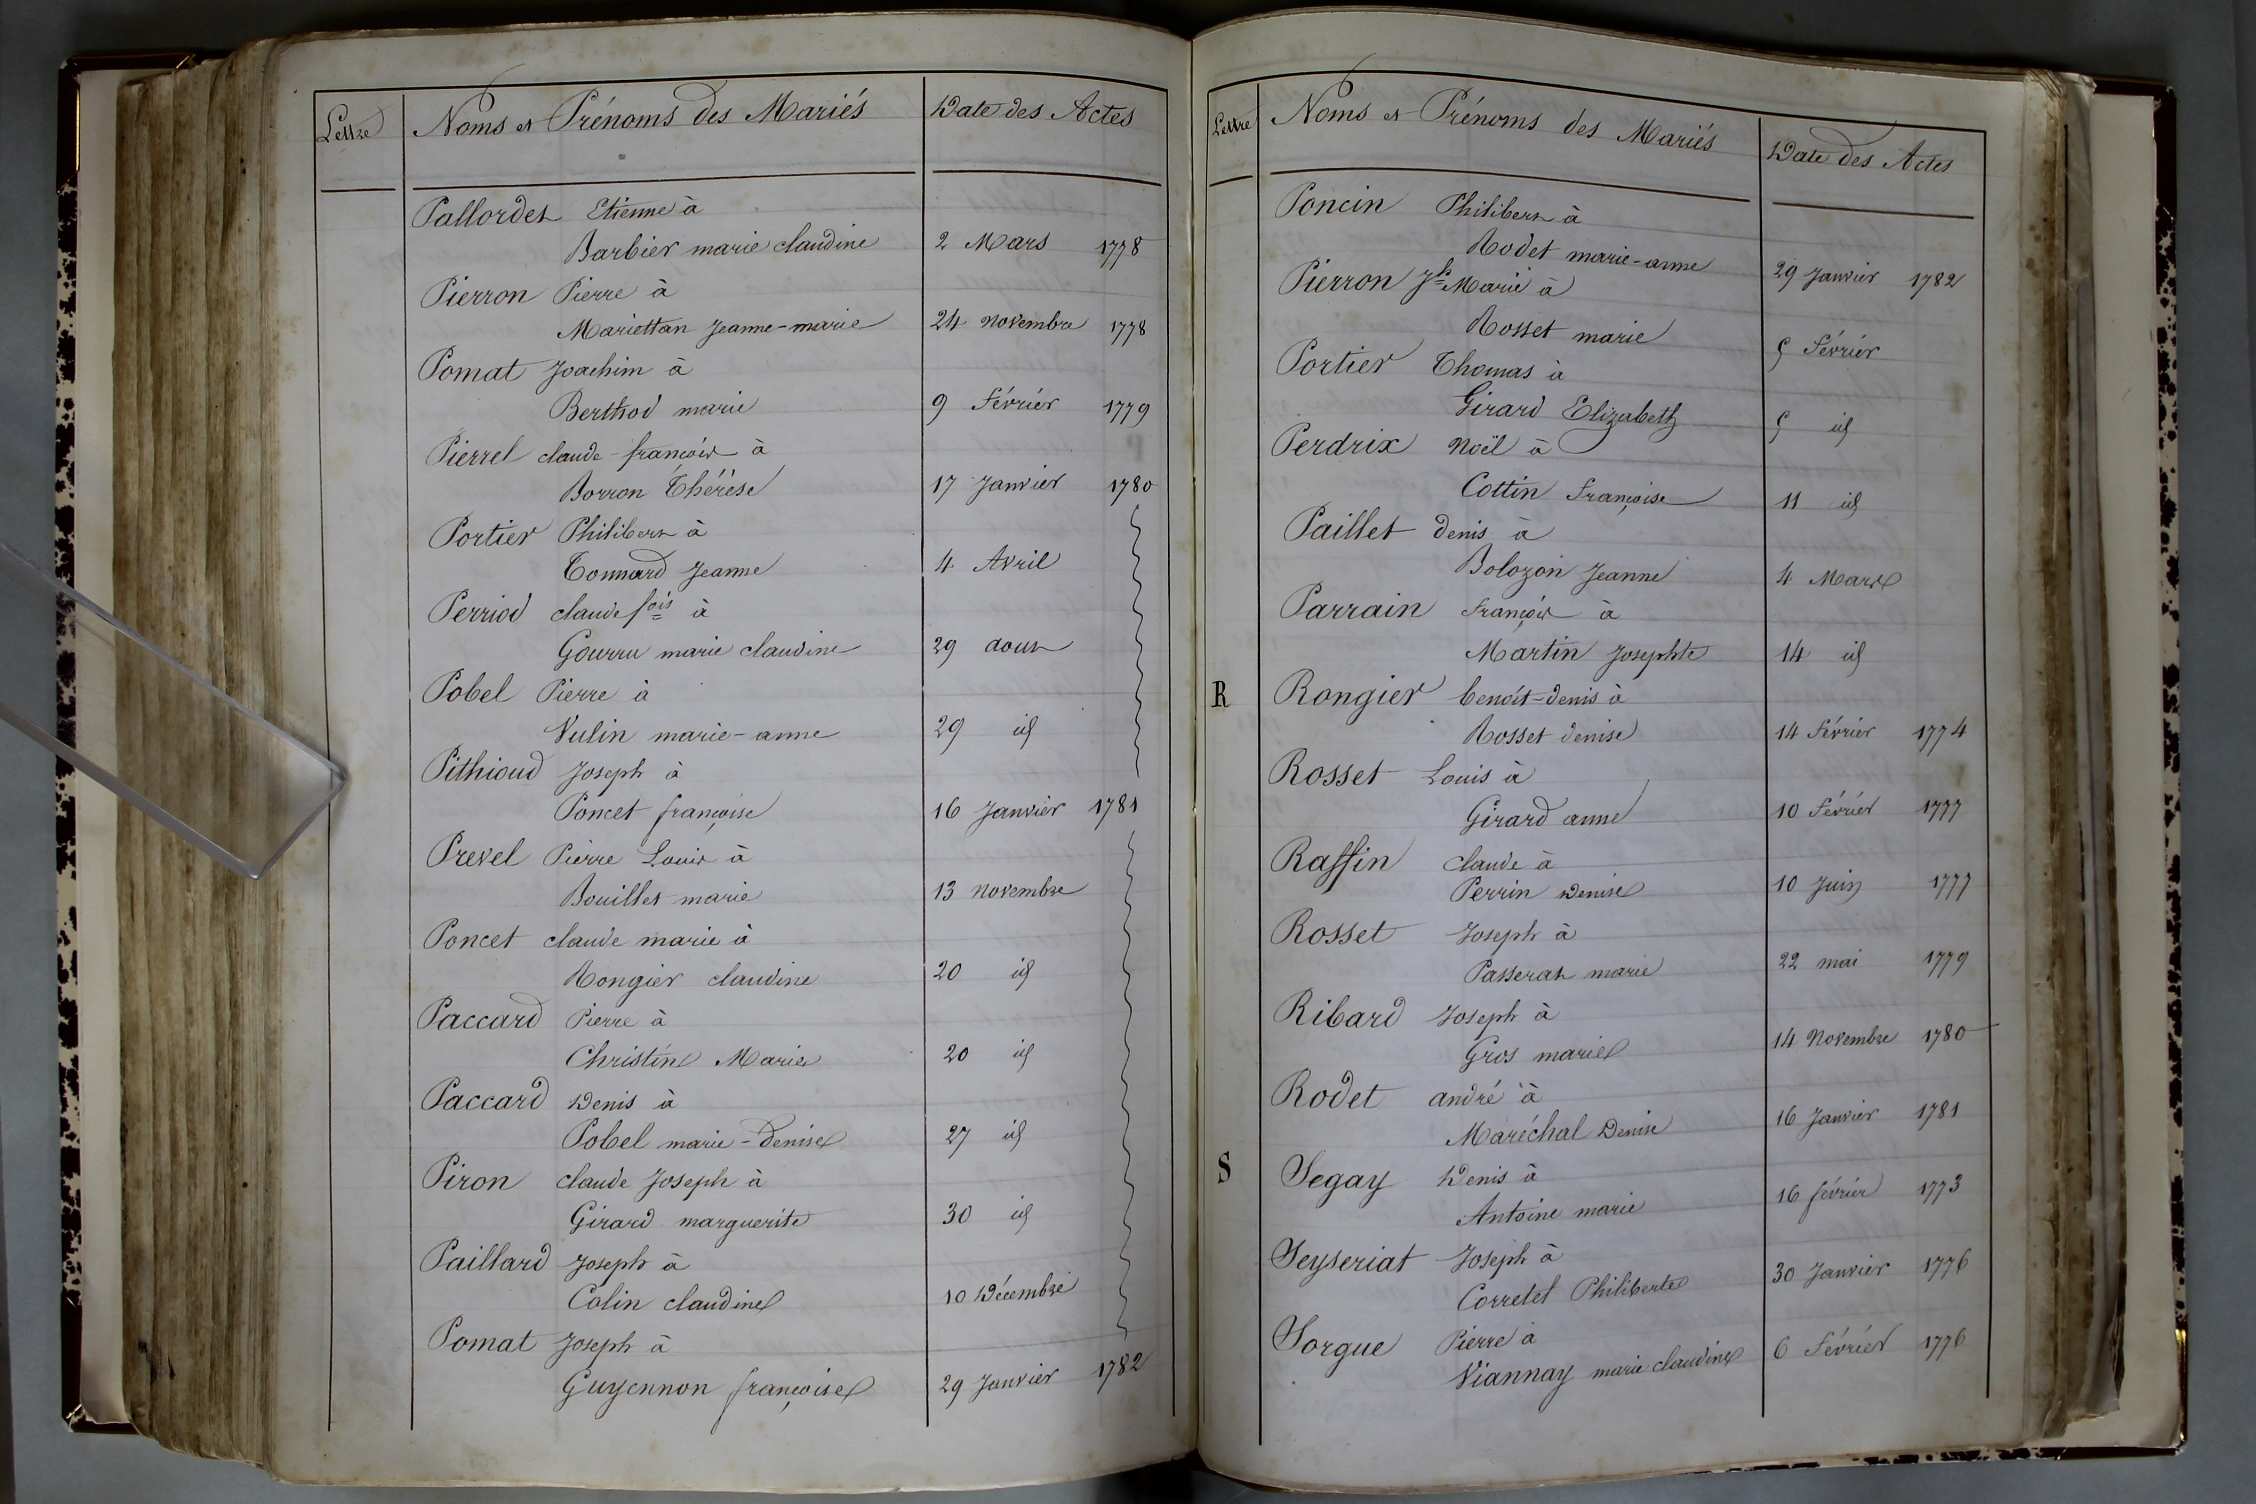 Lettre Noms et Prénoms des Mariés Date des Actes
Pallordet Etienne à
Barbier marie claudine 2 Mars 1778
Pierron Pierre à
Mariettan Jeanne-marie 24 novembre 1778
Pomat Joachim à
Berthod marie 9 Février 1779
Pierrel claude-françois à
Borron Thérèse 17 Janvier 1780
Portier Philibert à
Tonnard Jeanne 4 Avril
Perriod claude fois à
Gourru marie claudine 29 aout
Pobel Pierre à
Vulin marie-anne 29 id
Pithioud Joseph à
Poncet françoise 16 Janvier 1781
Prevel Pierre Louis à
Bouillet marie 13 novembre
Poncet claude marie à
Rongier claudine 20 id
Paccard Pierre à
Christin Marie 20 id
Paccard Denis à
Pobel marie-Denise 27 id
Piron claude Joseph à
Girard marguerite 30 id
Paillard Joseph à
Colin claudine 10 Décembre
Pomat Joseph à
Guyennon françoise 29 Janvier 1782
Lettre Noms et Prénoms des Mariés Date des Actes
Poncin Philibert à
Rodet marie-anne 29 Janvier 1782
Pierron Jh Marie à
Rosset marie 5 Février
Portier Thomas à
Girard Elizabeth 5 id
Perdrix Noël à
Cottin Françoise 11 id
Paillet denis à
Bolozon Jeanne 4 Mars
Parrain François à
Martin Josephte 14 id
R Rongier benoit-denis à
Rosset denise 14 Février 1774
Rosset Louis à
Girard anne 10 Février 1777
Raffin claude à
Perrin Denise 10 Juin 1777
Rosset Joseph à
Passerat marie 22 mai 1779
Ribard Joseph à
Gros marie 14 Novembre 1780
Rodet andré à
Maréchal Denise 16 Janvier 1781
S Segay Denis à
Antoine marie 16 février 1773
Seyseriat Joseph à
Corretet Philiberte 30 Janvier 1776
Sorgue Pierre à
Viannay marie claudine 6 Février 1776